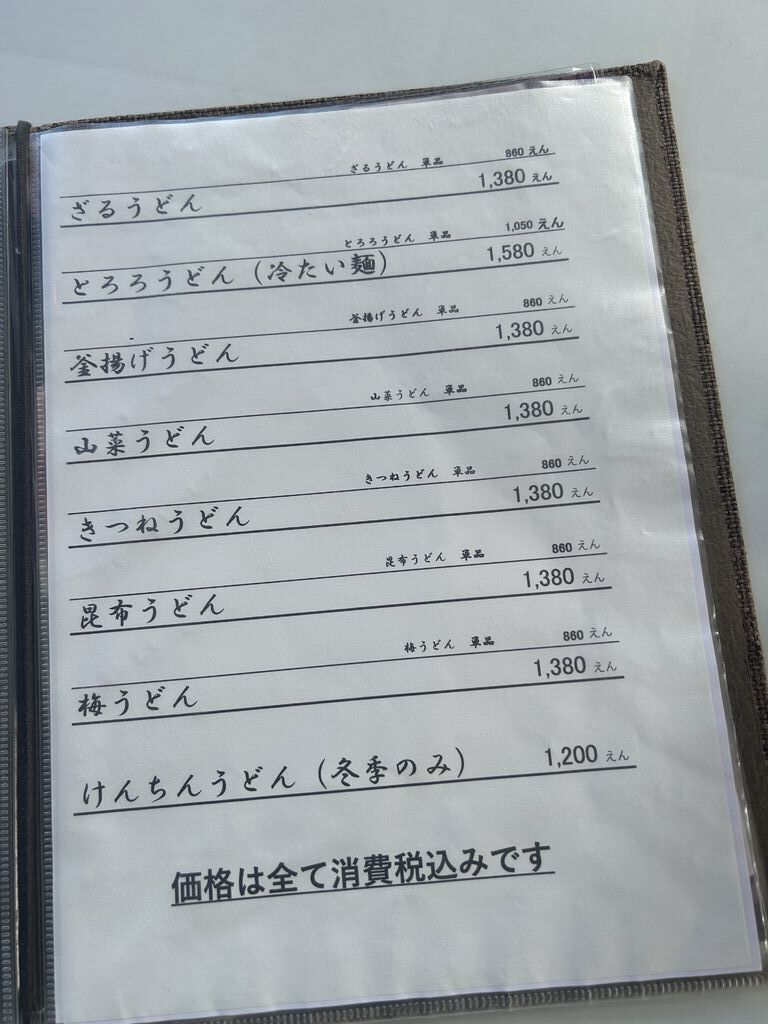 ざるうどん 単品 860 えん
ざるうどん 1,380 えん
とろろうどん 単品 1,050 えん
とろろうどん（冷たい麺） 1,580 えん
釜揚げうどん 単品 860 えん
釜揚げうどん 1,380 えん
山菜うどん 単品 860 えん
山菜うどん 1,380 えん
きつねうどん 単品 860 えん
きつねうどん 1,380 えん
昆布うどん 単品 860 えん
昆布うどん 1,380 えん
梅うどん 単品 860 えん
梅うどん 1,380 えん
けんちんうどん（冬季のみ） 1,200 えん
価格は全て消費税込みです